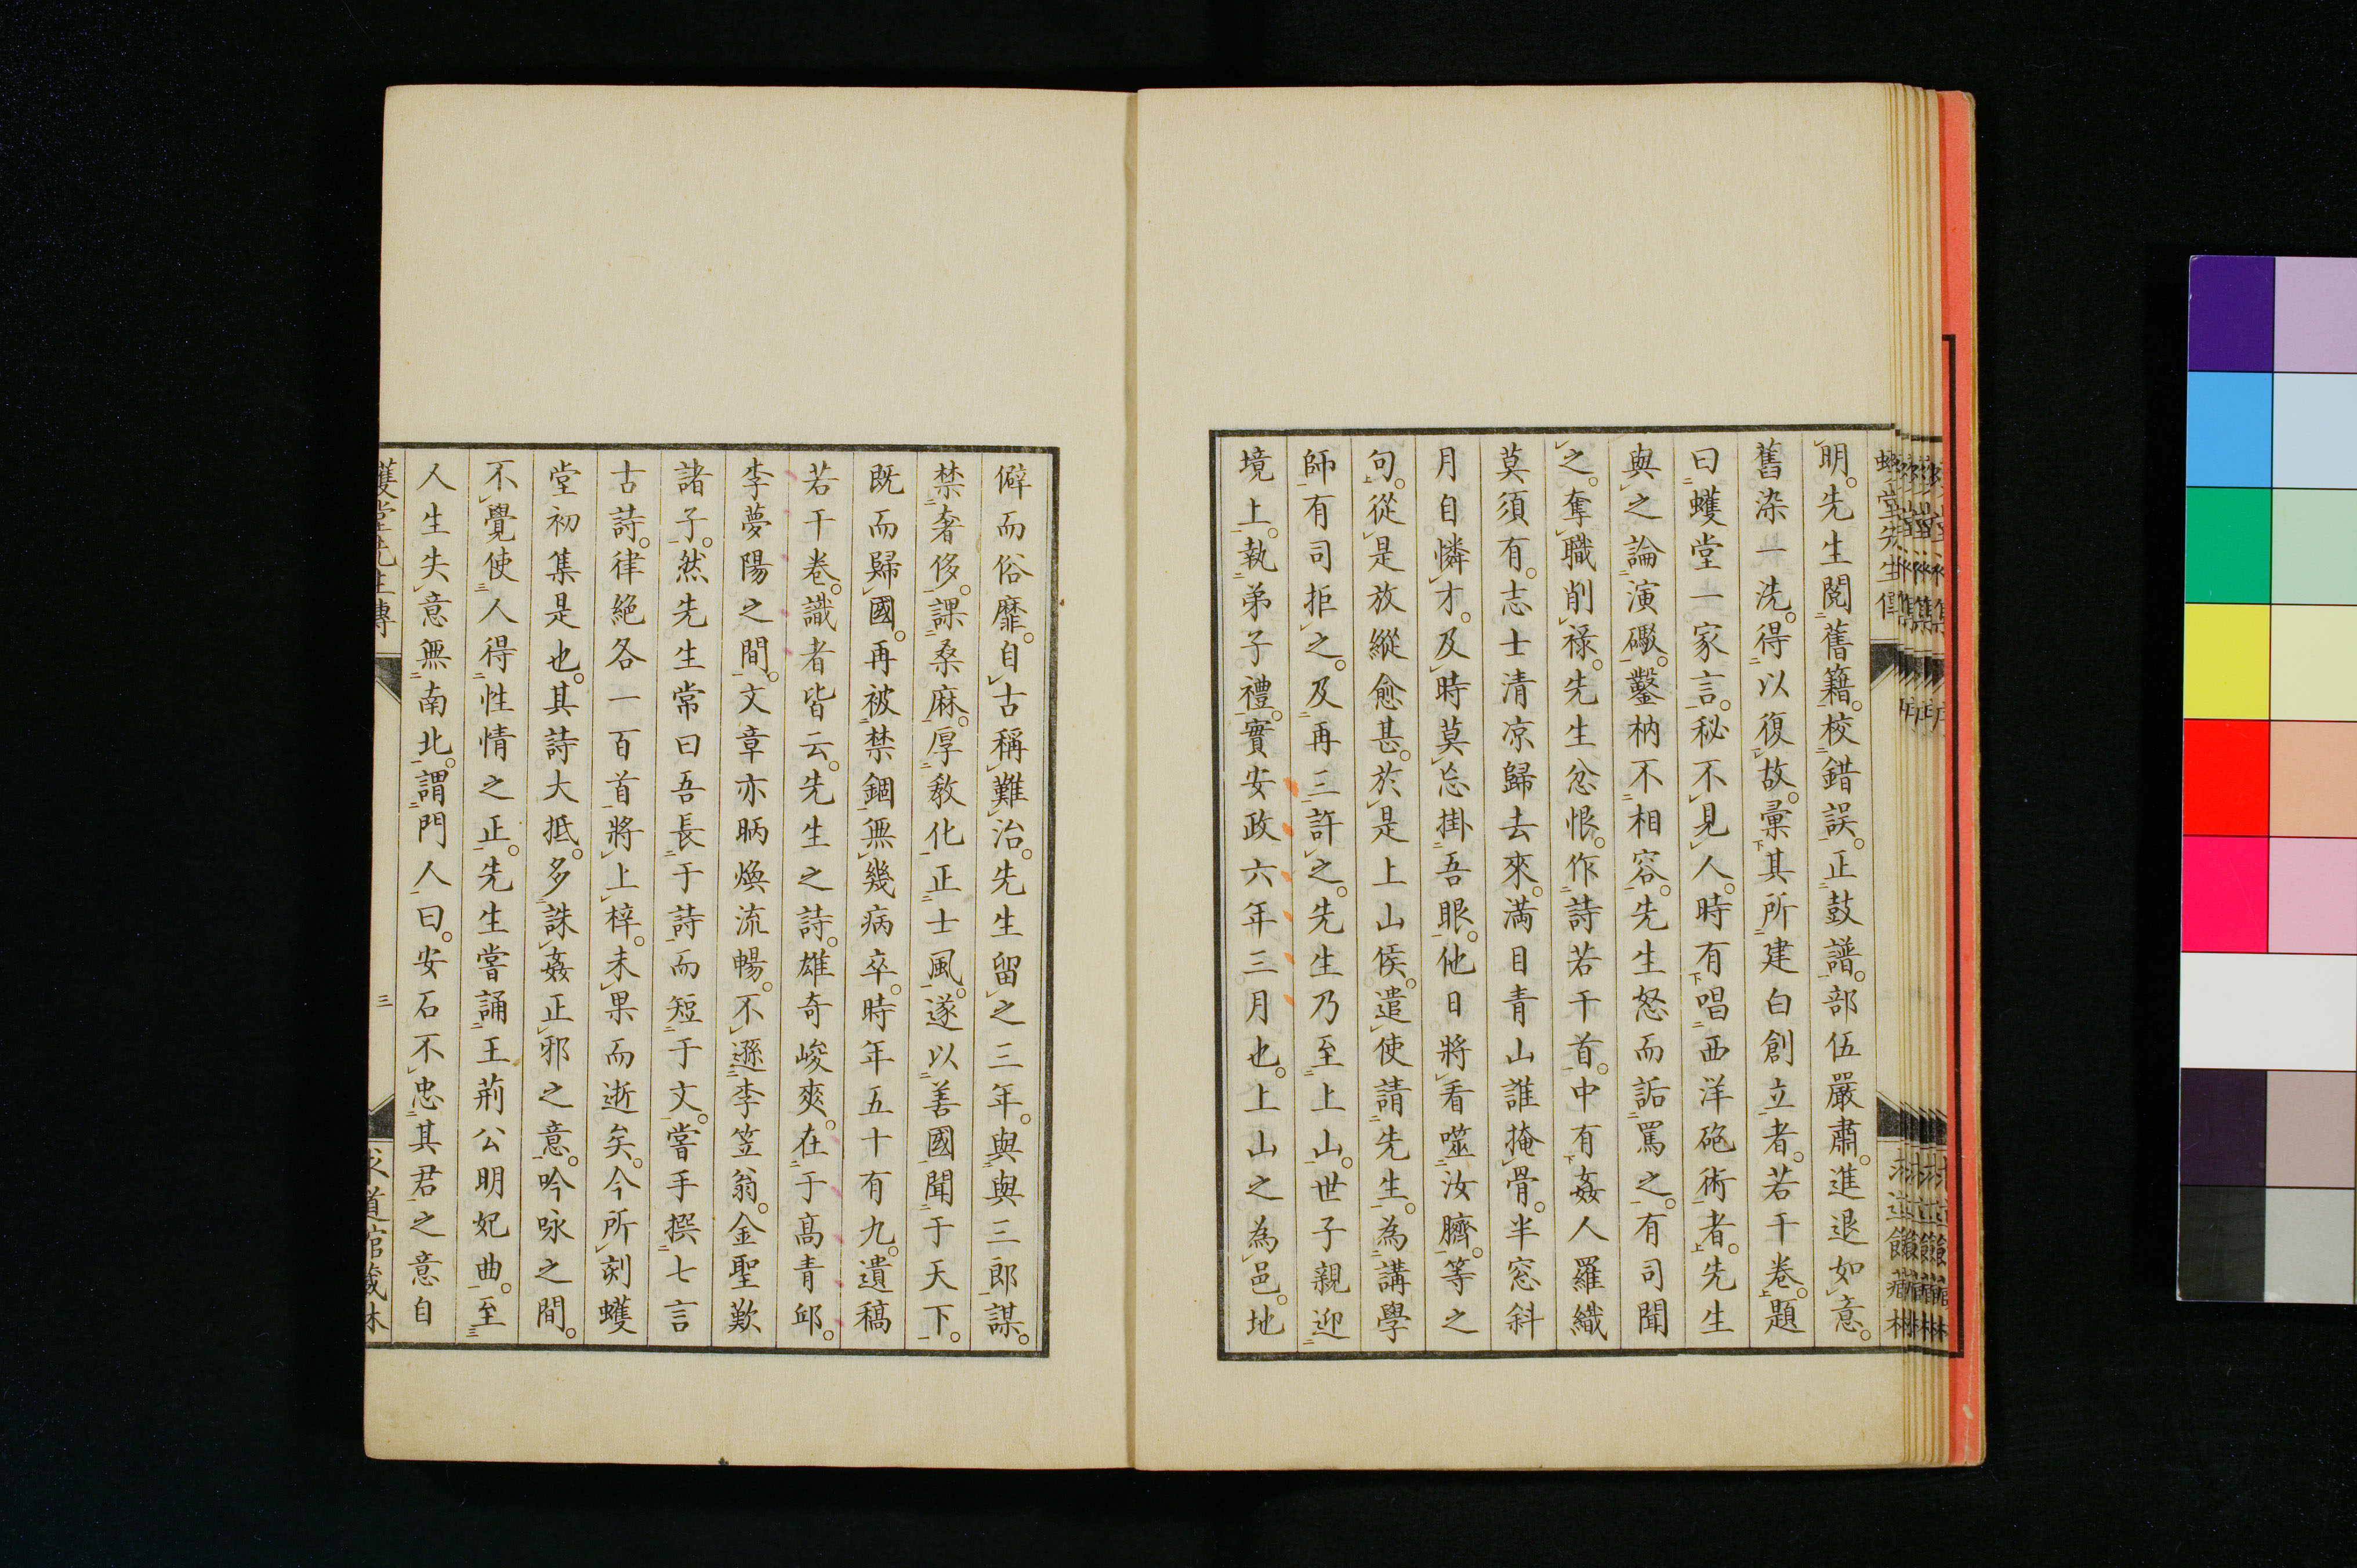 明。先生閱舊籍。校錯誤。正鼓譜。部伍嚴肅。進退如意。
舊染一洗。得以復故。彙其所建白創立者。若干卷。題
曰蠖堂一家言。秘不見人。時有唱西洋砲術者。先生
與之論演礮。鑿枘不相容。先生怒而詬罵之。有司聞
之。奪職削祿。先生忿恨。作詩若干首。中有姦人羅織
莫須有。志士清凉歸去來。満目青山誰掩骨。半窓斜
月自憐才。及時莫忘掛吾眼。他日將看噬汝臍。等之
句。從是放縱愈甚。於是上山侯。遣使請先生。為講學
師。有司拒之。及再三許之。先生乃至上山。世子親迎
境上。執弟子禮。實安政六年三月也。上山之為邑。地
僻而俗靡。自古稱難治。先生留之三年。與與三郎謀。
禁奢侈。課桑麻。厚教化。正士風。遂以善國聞于天下。
既而歸國。再被禁錮。無幾病卒。時年五十有九。遺稿
若干卷。識者皆云。先生之詩。雄奇峻爽。在于高青邱。
李夢陽之間。文章亦昞煥流暢。不遜李笠翁。金聖歎
諸子。然先生常曰吾長于詩而短于文。嘗手撰七言
古詩。律絕各一百首。將上梓。未果而逝矣。今所刻蠖
堂初集是也。其詩大抵。多誅姦正邪之意。吟咏之間。
不覺使人得性情之正。先生嘗誦王荊公明妃曲。至
人生失意無南北。謂門人曰。安石不忠其君之意自
蠖堂先生傳
三
求道館藏梓